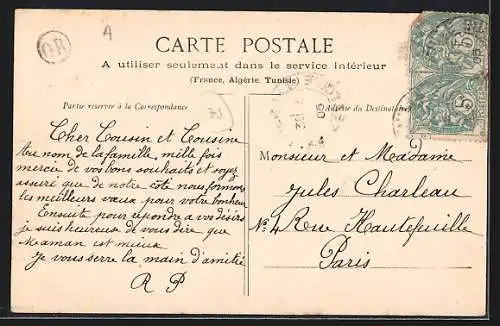 OR
A
CARTE POSTALE
A utiliser seulement dans le service intérieur
(France, Algérie, Tunisie)
Partie réservée à la Correspondance
Adresse du Destinataire
Cher Cousin et Cousine
Au nom de la famille, mille fois
merci de vos bons souhaits et soyez
assuré que de notre côté nous formons
les meilleurs vœux pour votre bonheur
Ensuite pour répondre a vos désirs
je suis heureux de vous dire que
Maman est mieux
Je vous serre la main d'amitié
R P
Monsieur et Madame
Jules Charleau
No 4 Rue Hautefuille
Paris
5
5